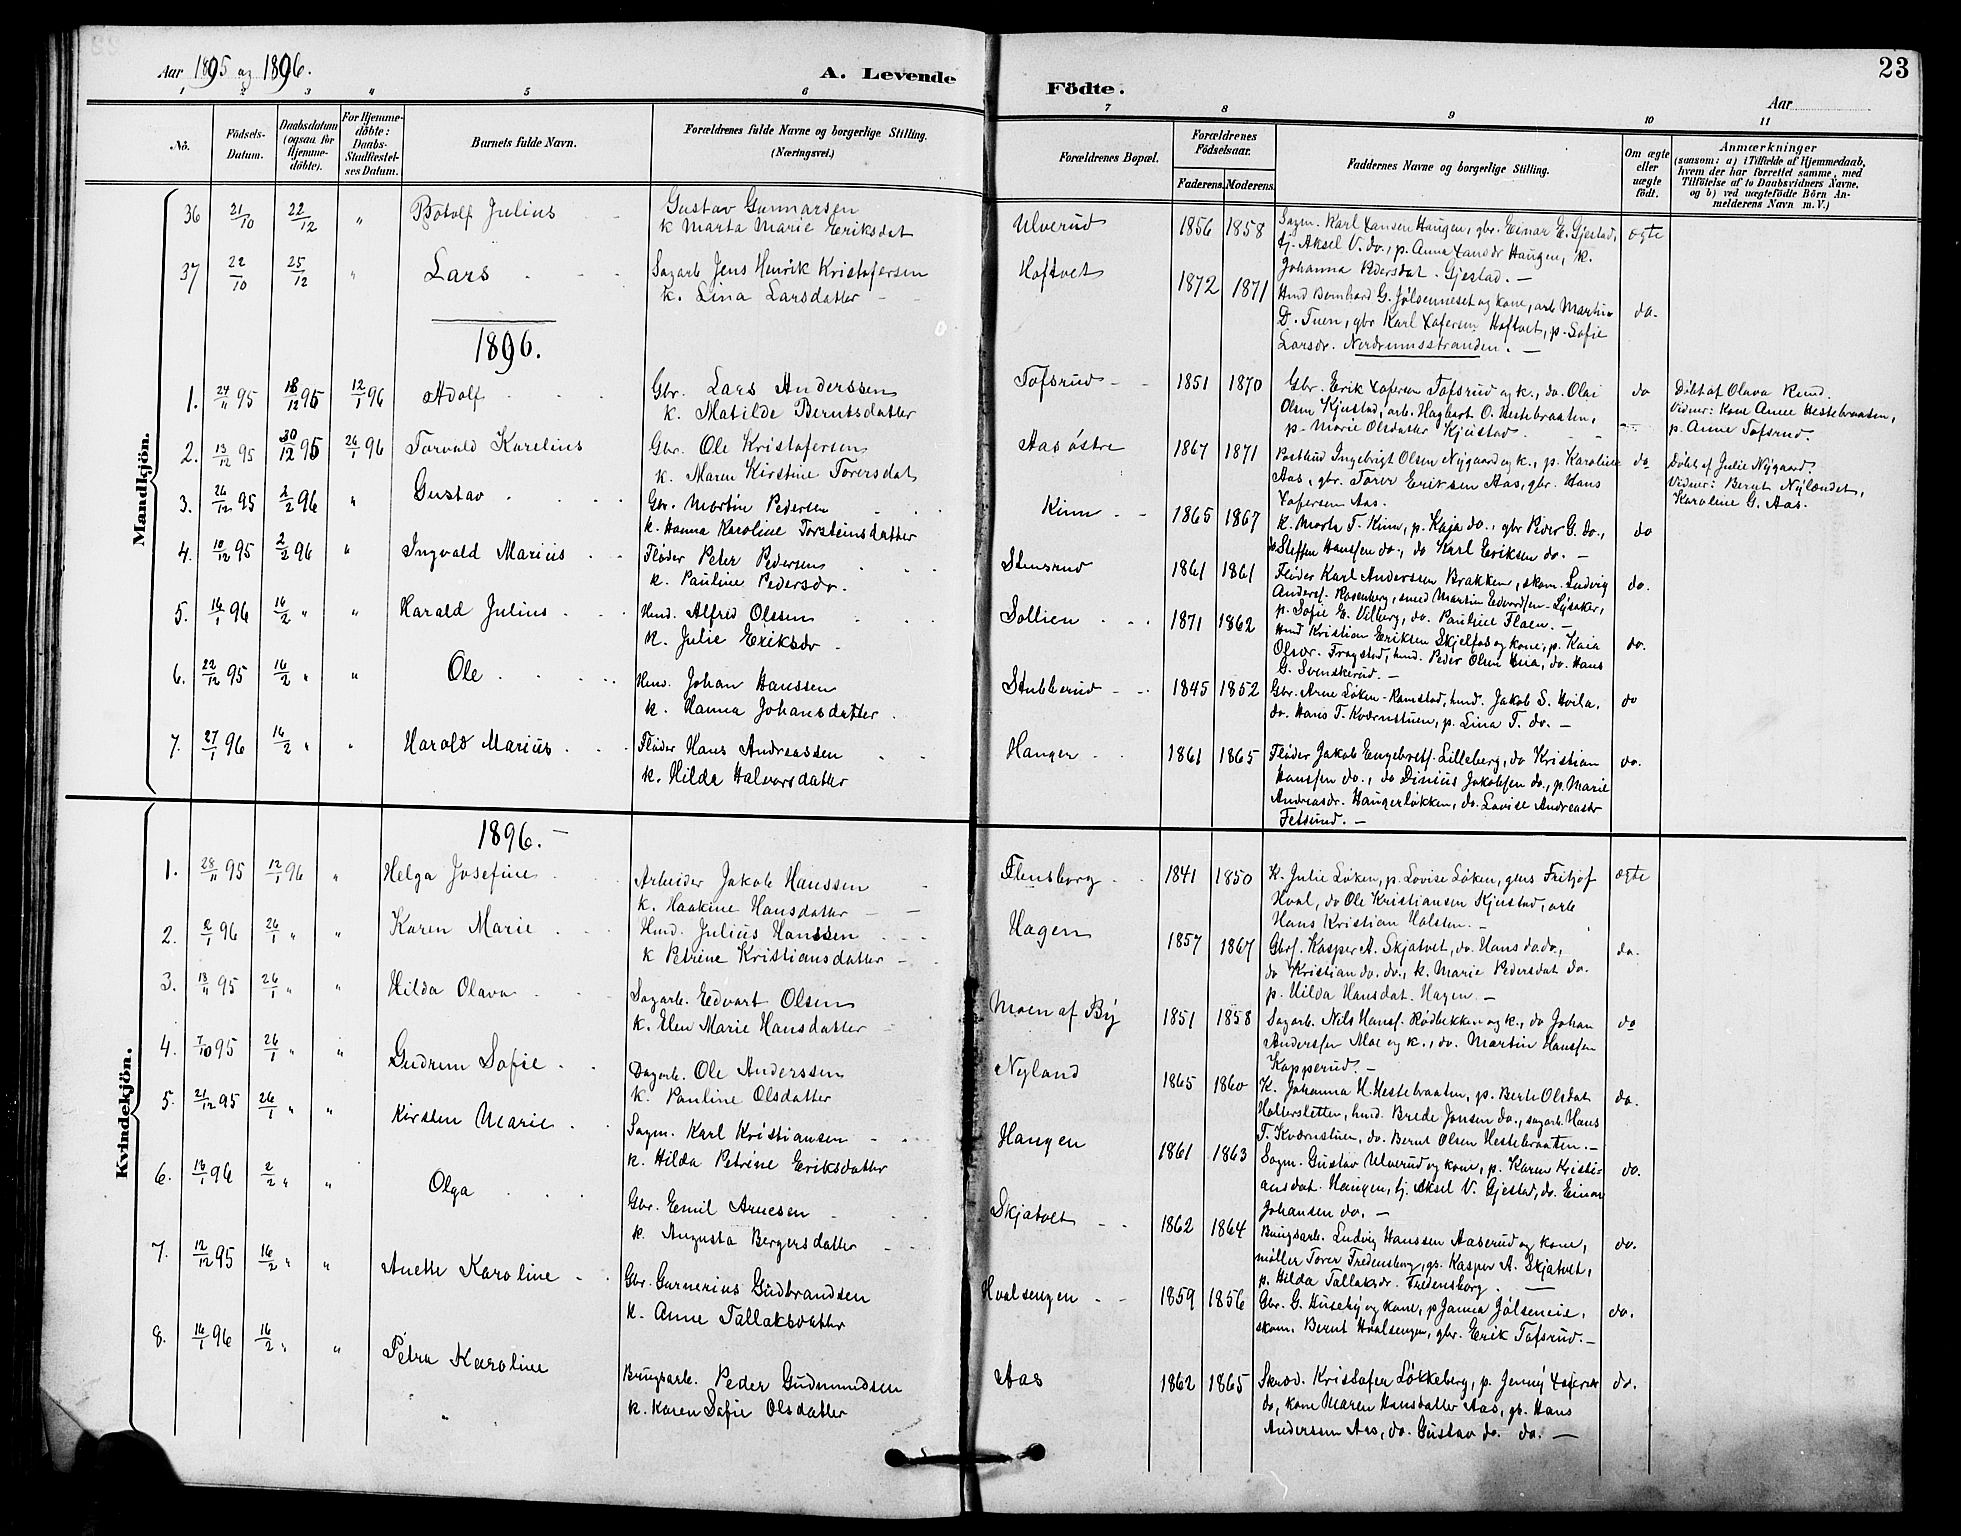 Aar 1895 og 1896.
A. Levende
Födte.
23
Aar
1 2 3 4 5 6 7 8 9 10 11
No.
Födsels-Datum.
Daabsdatum (ogsaa for Hjemme-döbte).
For Hjemme-döbte: Daabs-Stadfæstel-ses Datum.
Barnets fulde Navn.
Forældrenes fulde Navne og borgerlige Stilling. (Næringsvei.)
Forældrenes Bopæl.
Forældrenes Födselsaar.
Faderens. Moderens.
Faddernes Navne og borgerlige Stilling.
Om ægte eller uægte födt.
Anmærkninger
(saasom: a) i Tilfælde af Hjemmedaab,
hvem der har forrettet samme, med
Tilföielse af to Daabsvidners Navne,
og b) ved uægtefödte Börn An-
melderens Navn m. V.)
Mandkjön.
36 21/10 22/12 " Botolf Julius
Gustav Gunnarsen
k Marta Marie Eriksdat
Ulverud 1856 1858
Sagm. Karl Hansen Haugen, gbr. Einar E. Gjestad,
tj. Aksel V. do., p. Anna Haugen, k.
Johanna Pedersdat. Gjestad. —
ægte
37 22/10 25/12 " Lars
Sagarb Jens Henrik Kristofersen
k. Lina Larsdatter
Hoftvet 1872 1871
Hmd Bernhard G. Jølsenneset og kone, arb Martin
D. Tuen, gbr Karl Xofersen Hoftvet, p. Sofie
Larsdr. Nordrumsstranden. —
do.
1896.
1. 24/11 95 18/12 95 12/1 96 Adolf
Gbr. Lars Anderssen
k. Matilde Berntsdatter
Tofsrud 1851 1870
Gbr. Erik Xofersen Tofsrud og k., do. Olai
Olsen Kjustad, arb. Hagbart O. Hestebraaten,
p. Marie Olsdatter Kjustad.
do
Döbt af Olava Rud.
Vidner: Kone Anne Hestebraaten,
p. Anne Tofsrud.
2. 13/12 95 30/12 95 26/1 96 Torvald Karelius
Gbr. Ole Kristofersen
k. Maren Kirstine Toversdat
Aas østre 1867 1871
Postbud Ingebrigt Olsen Nygaard og k., p. Karoline
Aas, gbr. Torer Eriksen Aas, gbr. Hans
Xofersen Aas.
do
Döbt af Julie Nygaard.
Vidner: Bernt Nylændet,
Karoline G. Aas.
3. 26/12 95 2/2 96 " Gustav
Gbr. Martin Pedersen
k. Hanna Karoline Torsteinsdatter
Kinn 1865 1867
k. Marte T. Kinn, p. Kaja do., gbr Peder G. do.,
do Steffen Hanssen do., do Karl Eriksen do. —
do
4. 10/12 95 2/2 96 " Ingvald Marius
Fløder Peter Pedersen
k. Pauline Pedersdr.
Stensrud 1861 1861
Fløder Karl Anderssen Brakken, skom. Ludvig
Anders. Rosenberg, smed Martin Edvardsen Lysaker,
p. Sofie E. Vilberg, do. Pauline Flaen. —
do.
5. 16/1 96 16/2 " " Harald Julius
Hmd. Alfred Olssen
k. Julie Eriksdr
Sollien 1871 1862
Hmd Kristian Eriksen Skjelfos og kone, p. Kaia
Olsdr. Frogstad, hmd. Peder Olsen Hua, do. Hans
G. Svenskerud. —
do.
6. 22/12 95 16/2 " " Ole
Hmd. Johan Hanssen
k. Hanna Johansdatter
Stubberud 1845 1852
Gbr. Arne Løken-Ramstad, hmd. Jakob S. Hvila,
do. Hans T. Kværnstuen, p. Lina T. do. —
do
7. 27/1 96 16/2 " " Harald Marius
Fløder Hans Andreassen
k. Hilda Halvorsdatter
Hauger 1861 1865
Fløder Jakob Engebrets. Lilleberg, do Kristian
Hanssen do., do Dinius Jakobsen do., p. Marie
Andreasdr. Haugerløkken, do. Lovise Andreasdr
Fetsund. —
do.
Kvindekjön.
1896. —
1. 28/11 95 12/1 96 " Helga Josefine
Arbeider Jakob Hanssen
k. Haakine Hansdatter
Flensborg 1841 1850
K. Julie Løken, p. Lovise Løken, gbrs Fritjof
Hval, do Ole Kristiansen Kjustad, arb
Hans Kristian Holsten. —
ægte
2. 2/1 96 26/1 " " Karen Marie
Hmd. Julius Hanssen
k Petrine Kristiansdatter
Hagen 1857 1867
Gbrs. Kasper A. Skjatvet, do. Hans do. do.,
do Kristian do. do., k. Marie Pedersdat do.
p. Hilda Hansdat. Hagen. —
do.
3. 13/11 95 26/1 " " Hilda Olava
Sagarb. Edvart Olsen
k. Elen Marie Hansdatter
Moen af By 1851 1858
Sagarb. Nils Hans. Rødbekken og k., do Johan
Anderssen Moe og k., do. Martin Hanssen
Kopperud. —
do
4. 7/10 95 26/1 " " Gudrun Sofie
Dagarb. Ole Anderssen
k. Pauline Olsdatter
Nyland 1865 1860
K. Johanna H. Hestebraaten, p. Berte Olsdat
Haltersletten, hmd. Brede Jonsen do., sagarb Hans
T. Kværnstuen, do. Bernt Olsen Hestebraaten. —
do.
5. 21/12 95 26/1 " " Kirsten Marie
Sagm. Karl Kristiansen
k. Hilda Petrine Eriksdatter
Haugen 1861 1863
Sagm. Gustav Ulverud og kone, p. Karen Kristi-
ansdat. Haugen, tj. Aksel V. Gjestad, do. Einar
Johansen do. —
do.
6. 16/1 96 2/2 " " Olga
Gbr. Emil Arnesen
k. Augusta Bergersdatter
Skjatvet 1862 1864
Brugsarb. Ludvig Hanssen Aaserud og kone,
møller Torer Fredensborg, gs. Kasper A. Skjatvet,
p. Hilda Tallaksdr. Fredensborg. —
do.
7. 12/12 95 16/2 " " Anette Karoline
Gbr. Gunnerius Gudbrandsen
k. Anne Tallaksdatter
Hvalsengen 1859 1856
Gbr. G. Huseby og kone, p Janna Jølseneie,
skom. Bernt Hvalsengen, gbr. Erik Tofsrud. —
do.
8. 16/1 96 16/2 " " Petra Karoline
Brugsarb. Peder Gudmundsen
k. Karen Sofie Olsdatter
Aas 1862 1865
Skræd. Kristofer Løkkeberg, p. Jenny
do, kone Maren Hansdatter Aas, gs. Hans
Anderssen Aas, do. Gustav do. do. —
do.